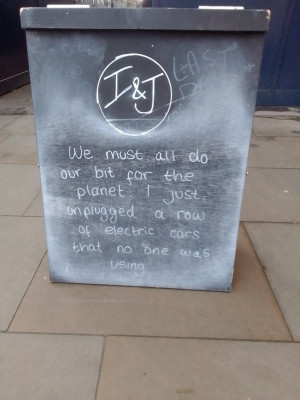 I & J
LAST
We must all do
our bit for the
planet. I just
unplugged a row
of electric cars
that no one was
using